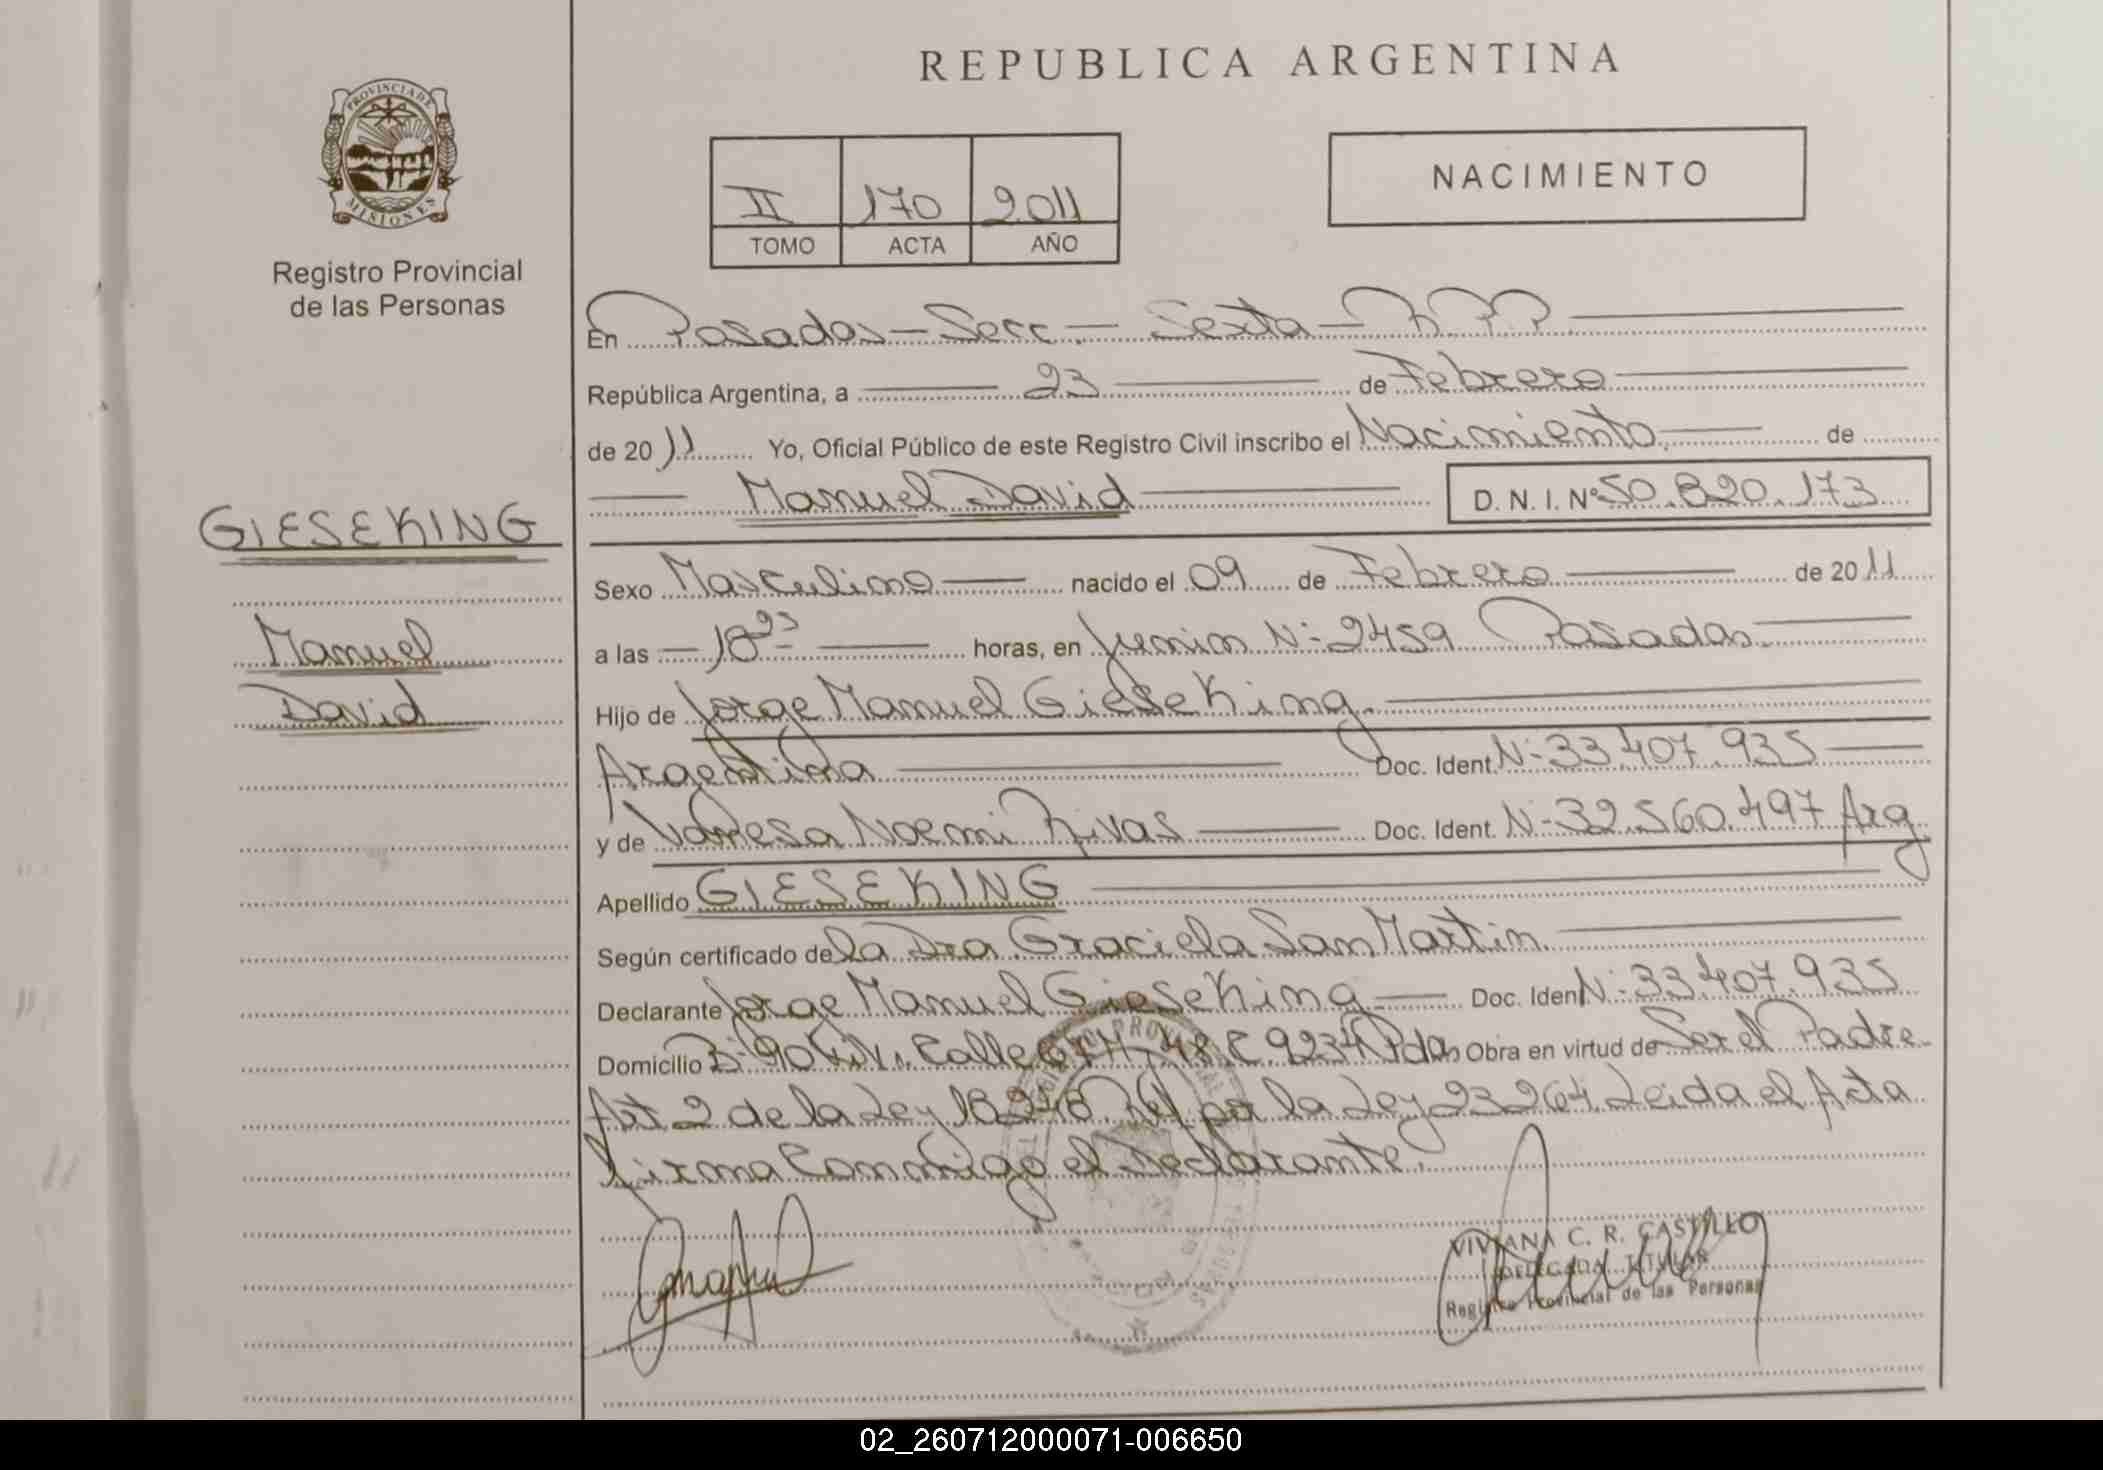 REPUBLICA ARGENTINA
PROVINCIA DE MISIONES
Registro Provincial
de las Personas
II 170 2011
TOMO ACTA AÑO
NACIMIENTO
En Posadas - Secc. - Sexta - R.P.P.
República Argentina, a 23 de Febrero
de 2011 Yo, Oficial Público de este Registro Civil inscribo el Nacimiento de
Manuel David D. N. I. Nº 50.820.173
GIESEKING
Manuel
David
Sexo Masculino nacido el 09 de Febrero de 2011
a las 18 23 horas, en Junin Nº 2459 Posadas
Hijo de Jorge Manuel Gieseking
Argentina Doc. Ident. Nº 33.407.935
y de Vanesa Noemi Rivas Doc. Ident. Nº 32.560.497 Arg
Apellido GIESEKING
Según certificado de la Dra. Graciela San Martin.
Declarante Jorge Manuel Gieseking Doc. Ident. Nº 33.407.935
Domicilio Bº 90 Viv. Calle C. 9234 Pdas Obra en virtud de Ser el Padre
Art 2 de la Ley 18.248 por la Ley 23264. Leida el Acta
firma Conmigo el Declarante.
VIVIANA C. R. CASTILLO
DELEGADA TITULAR
Registro Provincial de las Personas
02_260712000071-006650